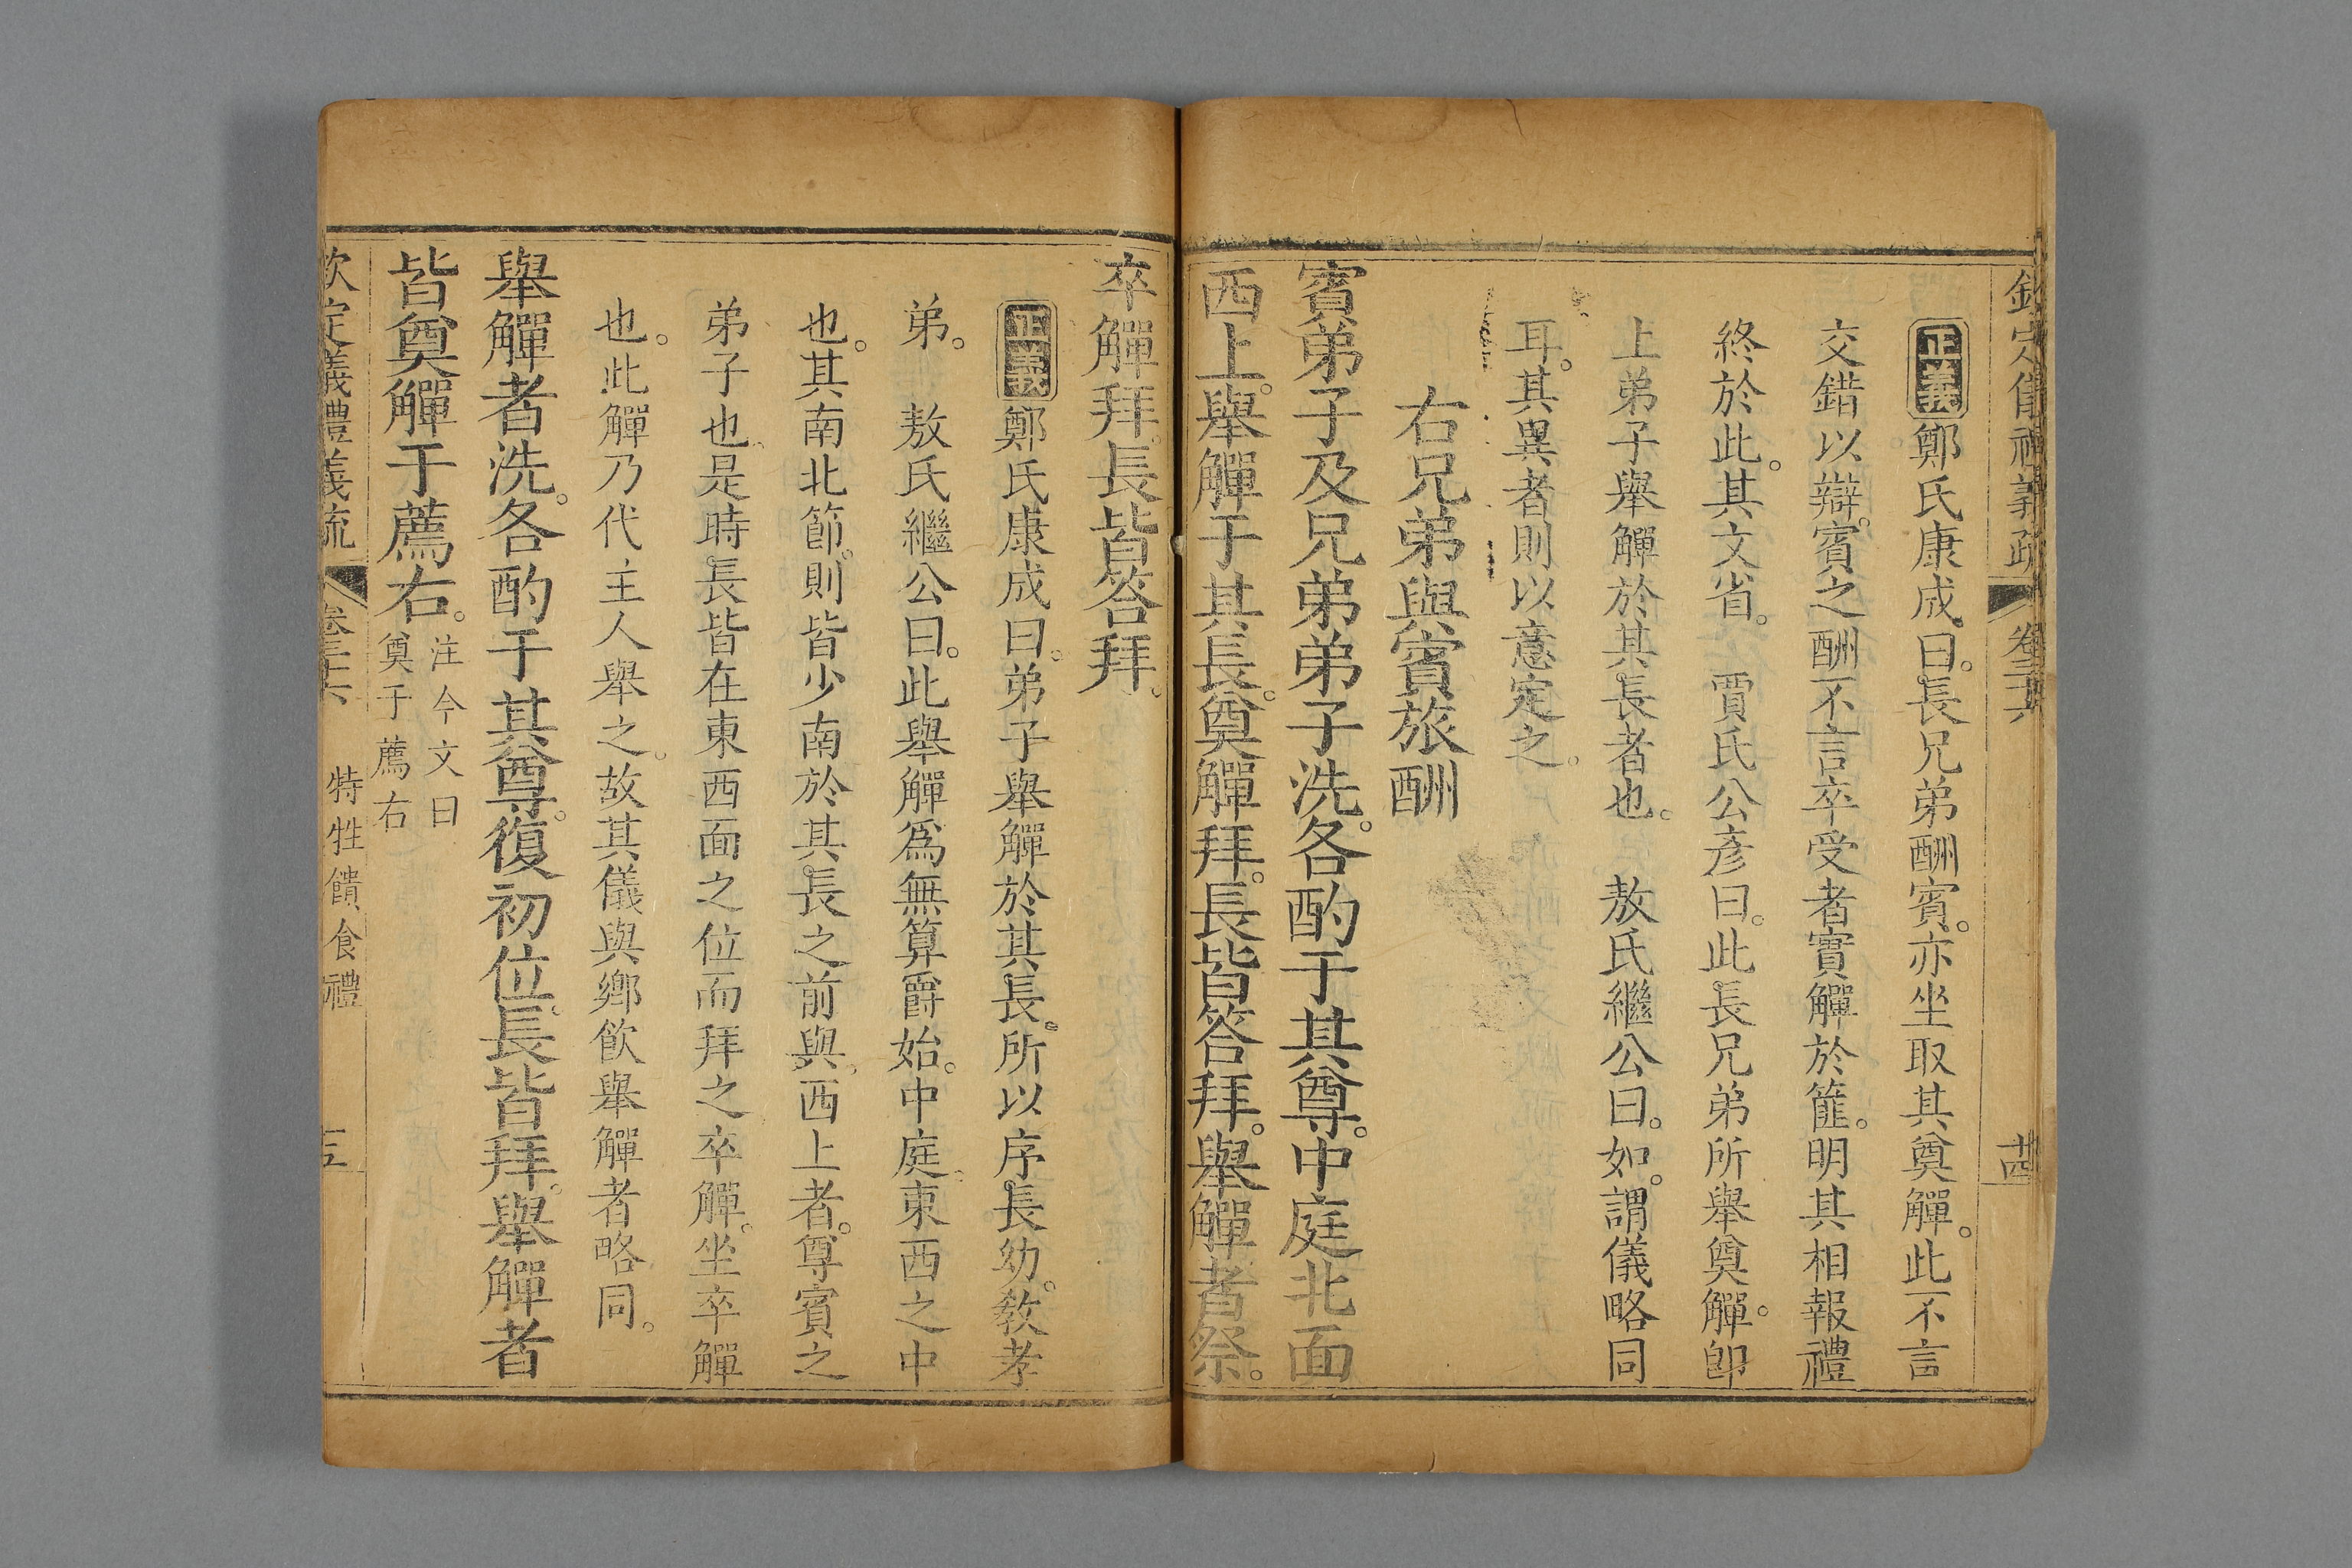 欽定儀禮義疏 卷三十六 十四
正義鄭氏康成曰。長兄弟酬賓。亦坐取其奠觶。此不言
交錯以辯。賓之酬不言卒受者實觶於篚。明其相報禮
終於此。其文省。 賈氏公彥曰。此長兄弟所舉奠觶。卽
上弟子舉觶於其長者也。 敖氏繼公曰。如。謂儀略同
耳。其異者則以意定之。
右兄弟與賓旅酬
賓弟子及兄弟弟子洗。各酌于其尊。中庭北面
西上。舉觶于其長。奠觶拜。長皆答拜。舉觶者祭。
卒觶拜。長皆答拜。
正義鄭氏康成曰。弟子舉觶於其長。所以序長幼。敎孝
弟。 敖氏繼公曰。此舉觶爲無算爵始。中庭。東西之中
也。其南北節。則皆少南於其長之前與。西上者。尊賓之
弟子也。是時長皆在東西面之位而拜之卒觶。坐卒觶
也。此觶乃代主人舉之。故其儀與鄉飮舉觶者略同。
舉觶者洗。各酌于其尊。復初位。長皆拜。舉觶者
皆奠觶于薦右。注今文曰奠于薦右
欽定儀禮義疏 卷三十六 特牲饋食禮 十五